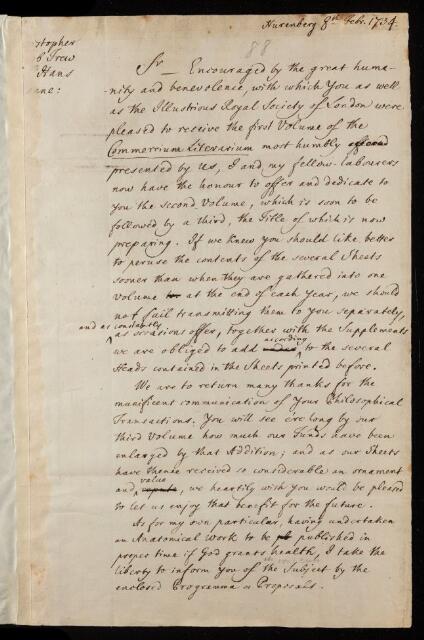 Nurenberg 8th Febr. 1734
88
stopher
Trew
Hans
ane:
Sr_ Encouraged by the great huma-
nity and benevolence, with which You as well
as the Illustrious Royal Society of London were
pleased to receive the first Volume of the
Commercium Literarium most humbly offered
presented by Us, I and my fellow-labourers
now have the honour to offer and dedicate to
You the second Volume, which is soon to be
followed by a third, the Title of which is now
preparing. If we knew you should like better
to peruse the contents of the several Sheets
sooner than when they are gathered into one
Volume at the end of each Year, we should
not fail transmitting them to You separately,
and as constantly
as occasions offer, together with the Supplements
according
we are obliged to add to the several
Heads contained in the Sheets printed before.
We are to return many thanks for the
munificent communication of Your Philosophical
Transactions. You will see e're long by our
third Volume how much our Funds have been
enlarged by that Addition; and as our Sheets
have thence received so considerable an ornament
value
and repute, we heartily wish You would be pleased
to let us enjoy that benefit for the future.
As for my own particular, having undertaken
an Anatomical Work to be pb published in
proper time if God grants health, I take the
liberty to inform you of the Subject by the
enclosed Programma or Proposals.